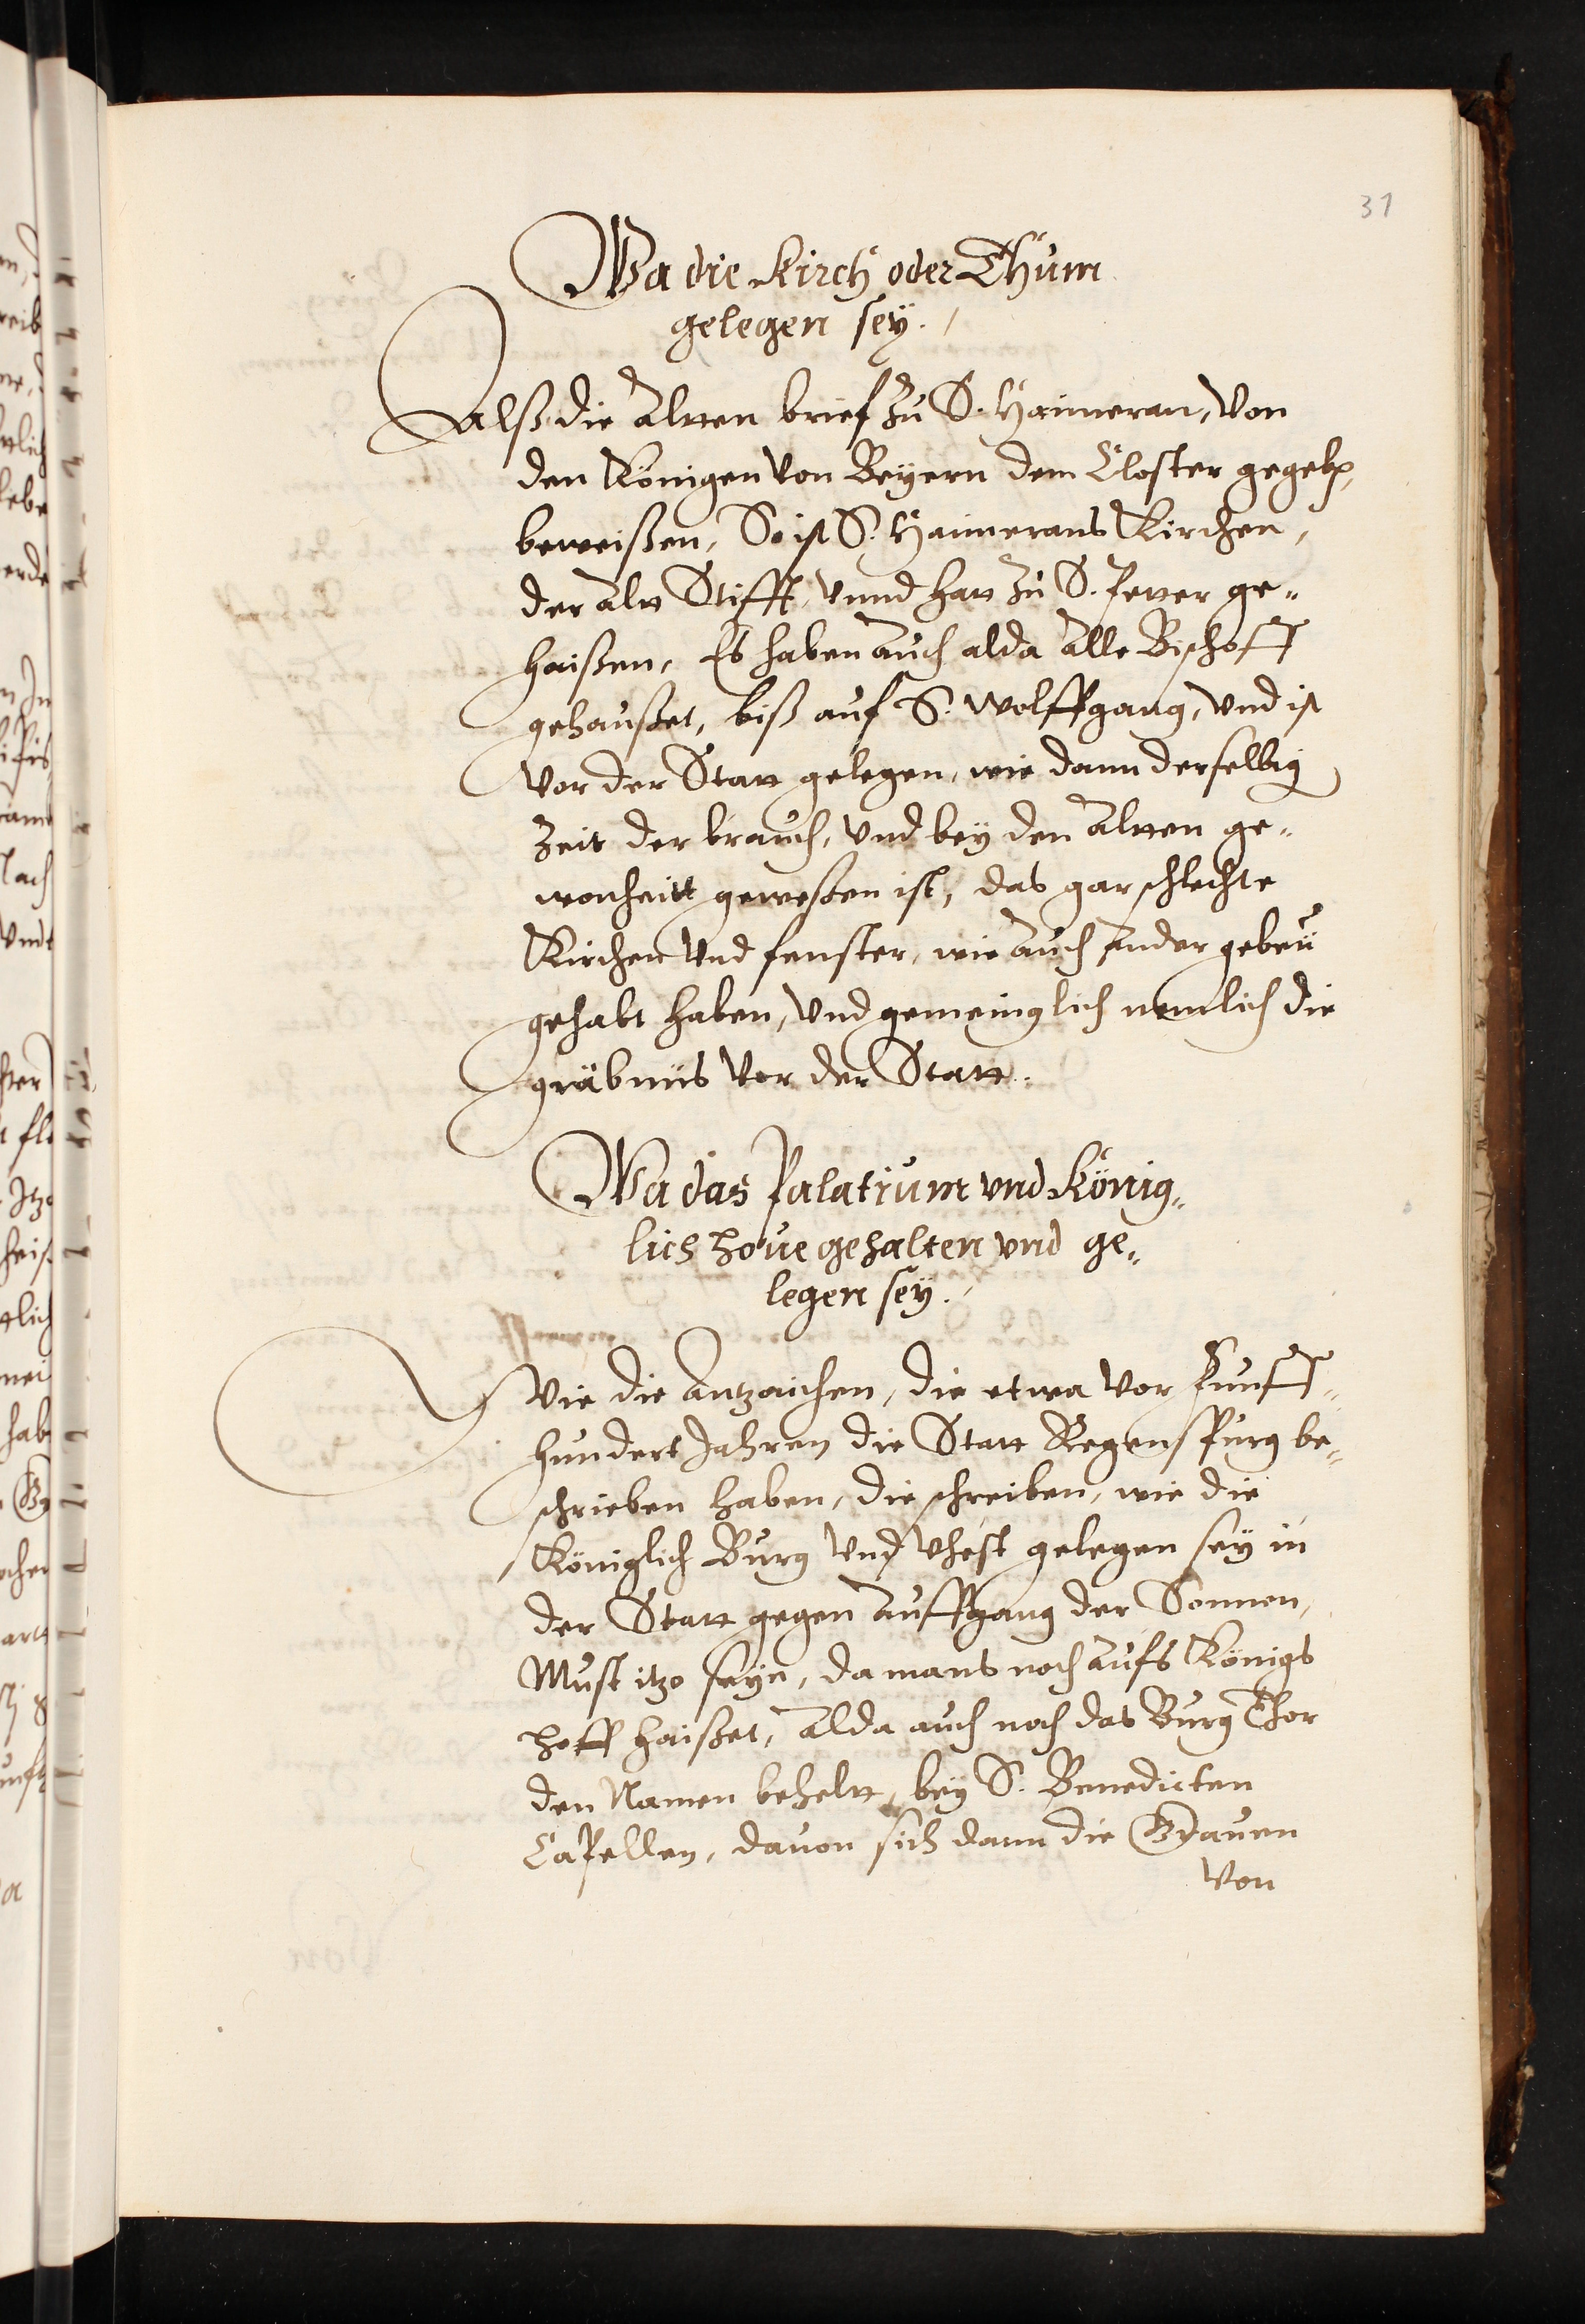 31
Wa die Kirch oder Thum
gelegen seÿ.
Alß die Altten brief zu S. Haimeran, von
den Königen von Beÿern dem Closter gegeben,
beweißen, So ist S. Haimerans Kirchen,
der Altt Stifft, vnnd hatt zu S. Petter ge„
haißen, Es haben auch alda Alle Bischoff
gehaußet, biß auf S. Wolffgang, vnd ist
vor der Statt gelegen, wie dann derselbig
Zeit der brauch, vnd beÿ den Altten ge„
wonheitt geweßen ist, das gar schlechte
Kirchen vnd fenster, wie auch Ander gebeü
gehabt haben, vnd gemeinglich nemlich die
gräbnüs vor der Statt.
Wa das Palatium vnd König„
lich houe gehalten vnd ge„
legen seÿ.
Wie die Antzaichen, die etwa vor Funff„
hundert Jahren die Statt Regenspurg be„
schrieben haben, die schreiben, wie die
Königlich Burg vnd Vhest gelegen seÿ in
der Statt gegen Auffgang der Sonnen,
Must itzo seÿn, da mans noch Aufs Königs
hoff haißet, Alda auch noch das Burg Thor
den Namen beheltt, beÿ S. Benedicten
Capellen, dauon sich dann die Grauen
von